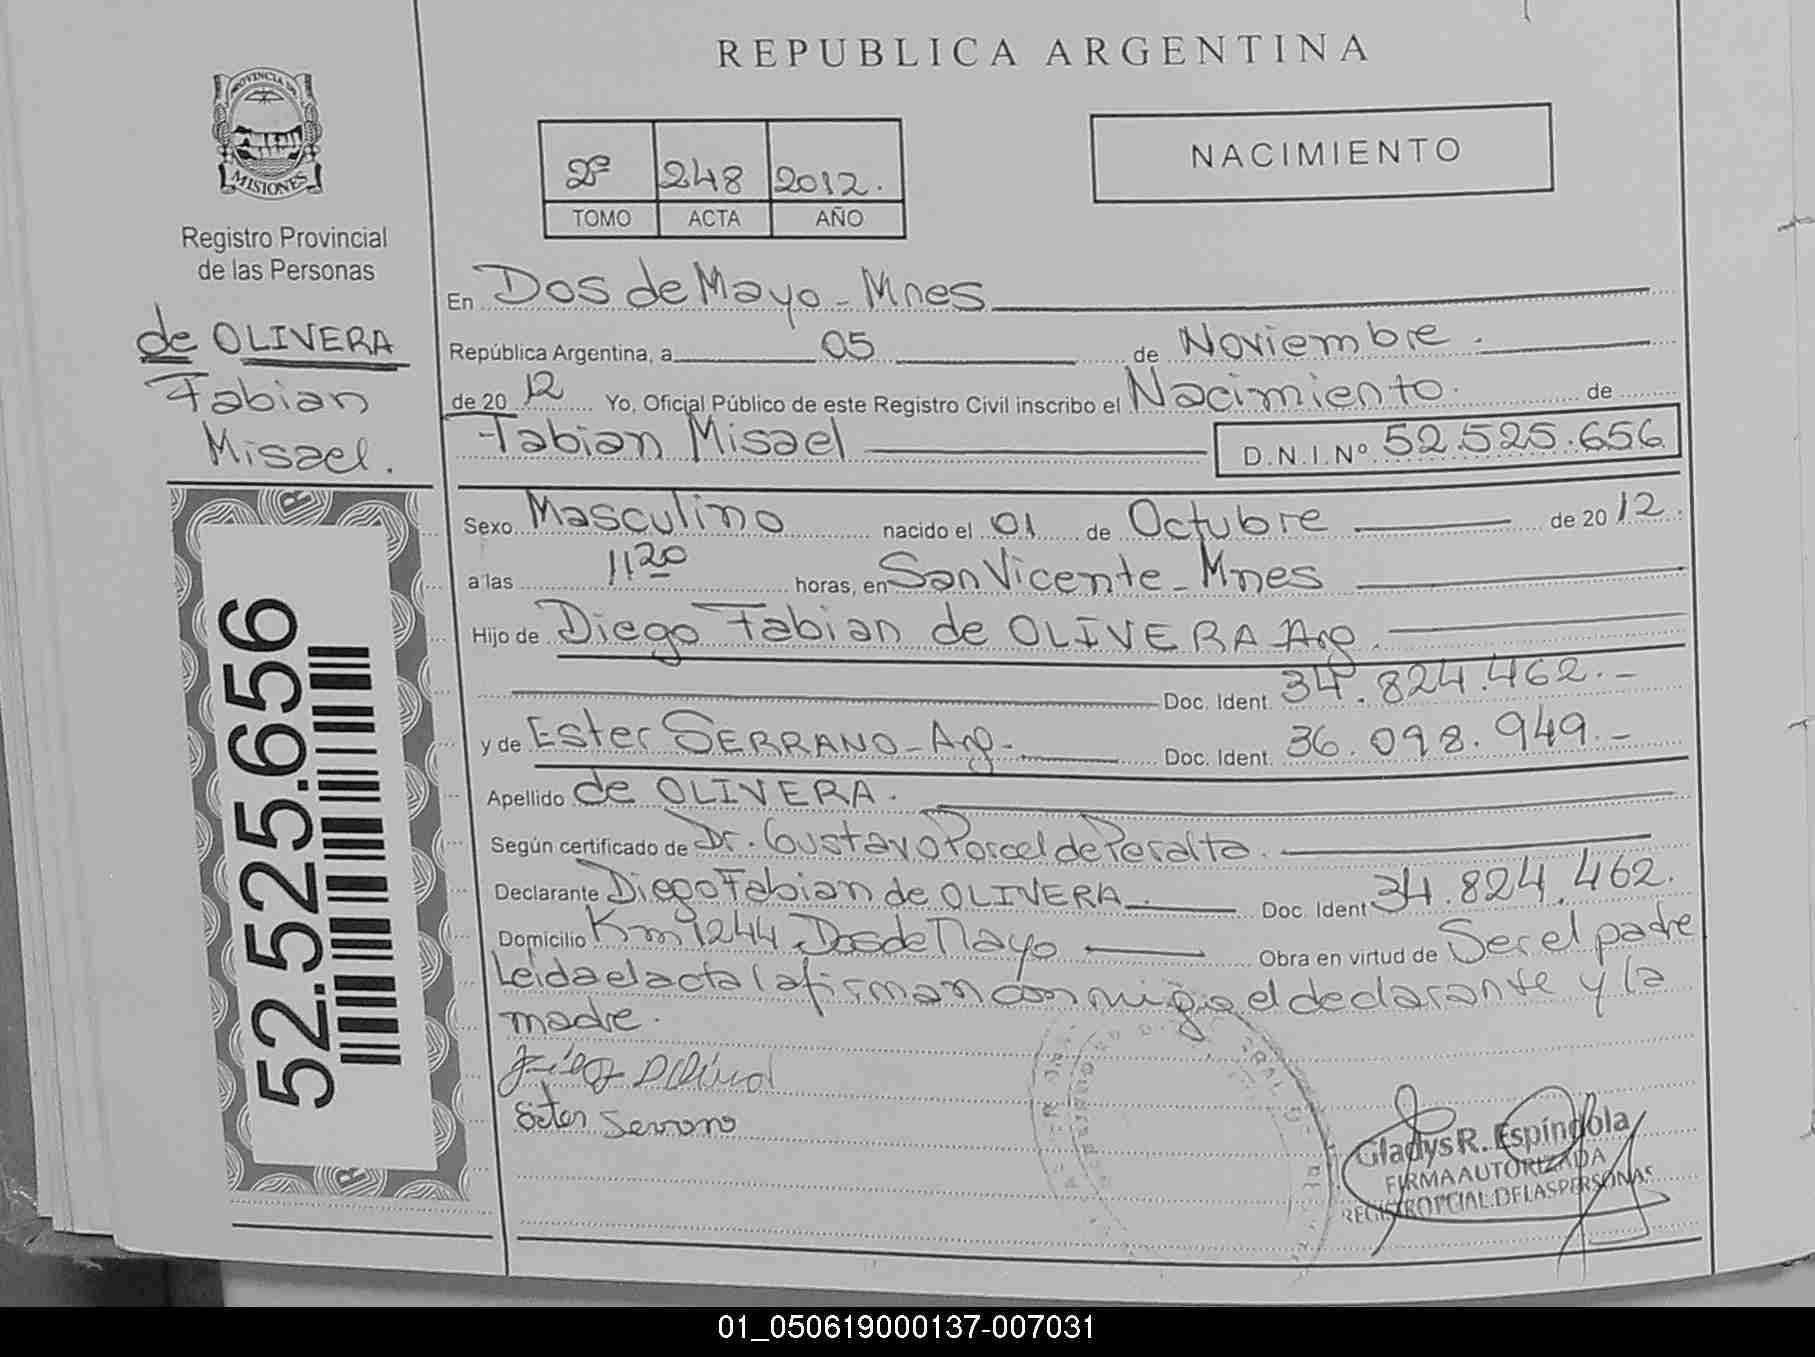 REPUBLICA ARGENTINA
PROVINCIA DE
MISIONES
Registro Provincial
de las Personas
de OLIVERA
Fabian
Misael.
52.525.656
2º 248 2012.
TOMO ACTA AÑO
NACIMIENTO
En Dos de Mayo - Mnes
República Argentina, a 05 de Noviembre.
de 20 12 Yo, Oficial Público de este Registro Civil inscribo el Nacimiento. de
Fabian Misael D.N.I.Nº 52.525.656
Sexo Masculino nacido el 01 de Octubre de 20 12.
a las 11 20 horas, en San Vicente - Mnes
Hijo de Diego Fabian de OLIVERA Arg.
Doc. Ident. 34.824.462.-
y de Ester SERRANO - Arg.- Doc. Ident. 36.098.949.-
Apellido de OLIVERA.
Según certificado de Dr. Gustavo Porcel de Peralta.
Declarante Diego Fabian de OLIVERA Doc. Ident 34.824.462.
Domicilio Km 1244 Dos de Mayo Obra en virtud de Ser el padre
Leida el acta la firman conmigo el declarante y la
madre.
Ester Serrano
Gladys R. Espíndola
FIRMA AUTORIZADA
REGISTRO PCIAL. DE LAS PERSONAS
01_050619000137-007031